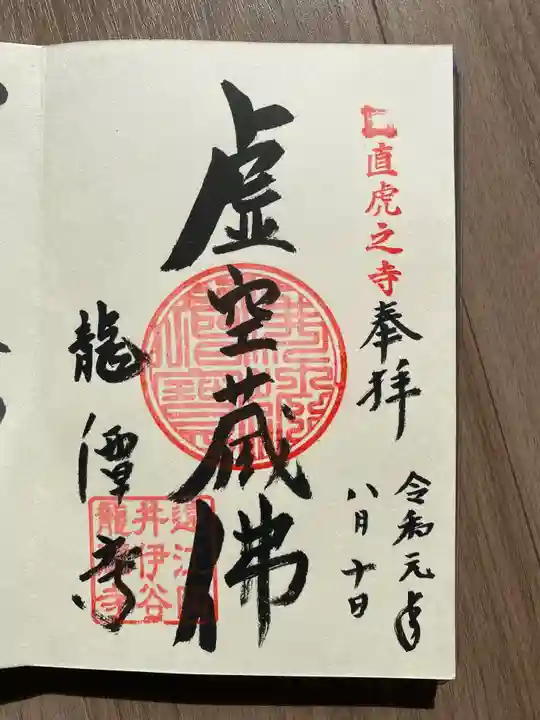 直虎之寺
奉拝
令和元年
八月十日
虚空蔵佛
龍潭寺
井伊谷